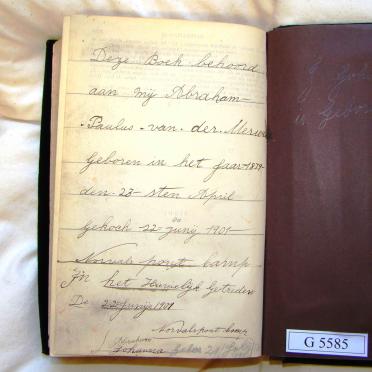 Deze Boek behoord
aan mij Abraham
Paulus van der Merwe
Geboren in het Jaar 1879
den 23 sten April
gekoch 22 junij 1901
Norvals pont Camp
In het Huwelijk Getreden
De 22 Junij 1901
Norvalspont
Johanna
G 5585